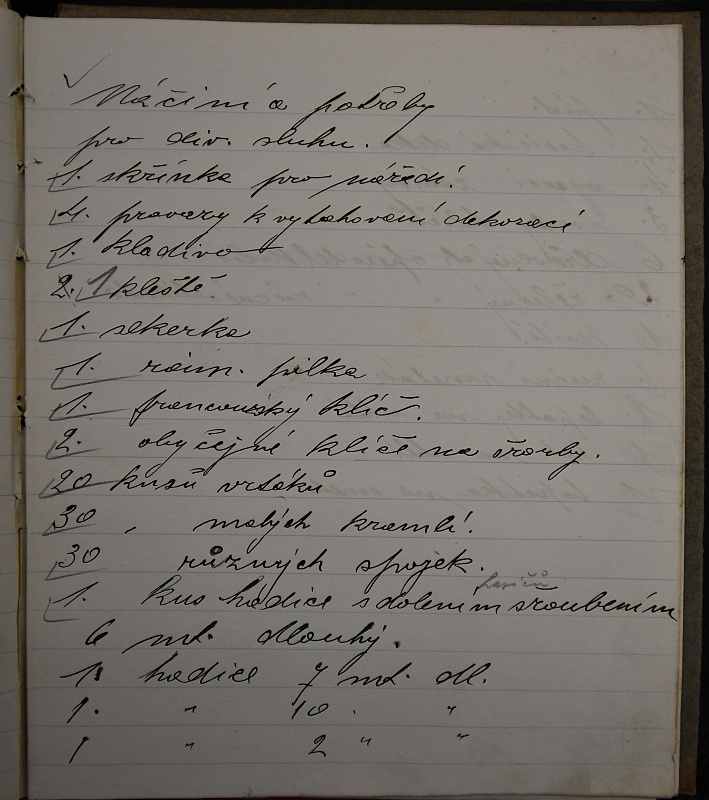 Náčiní a potřeby
pro div. sluhu.
1. skřínka pro nářadí.
4. provazy k vytahování dekorací
1. kladivo
2. 1 kleště
1. sekerka
1. rám. pilka
1. francouzský klíč.
2. obyčejné klíče na šrouby.
20 kusů vrtáků
30 „ malých kramlí.
30 různých spojek.
hasičů
1. kus hadice s šroubením
6 mt. dlouhý.
1. hadice 7 mt. dl.
1. " 10 . "
1 " 2 " "